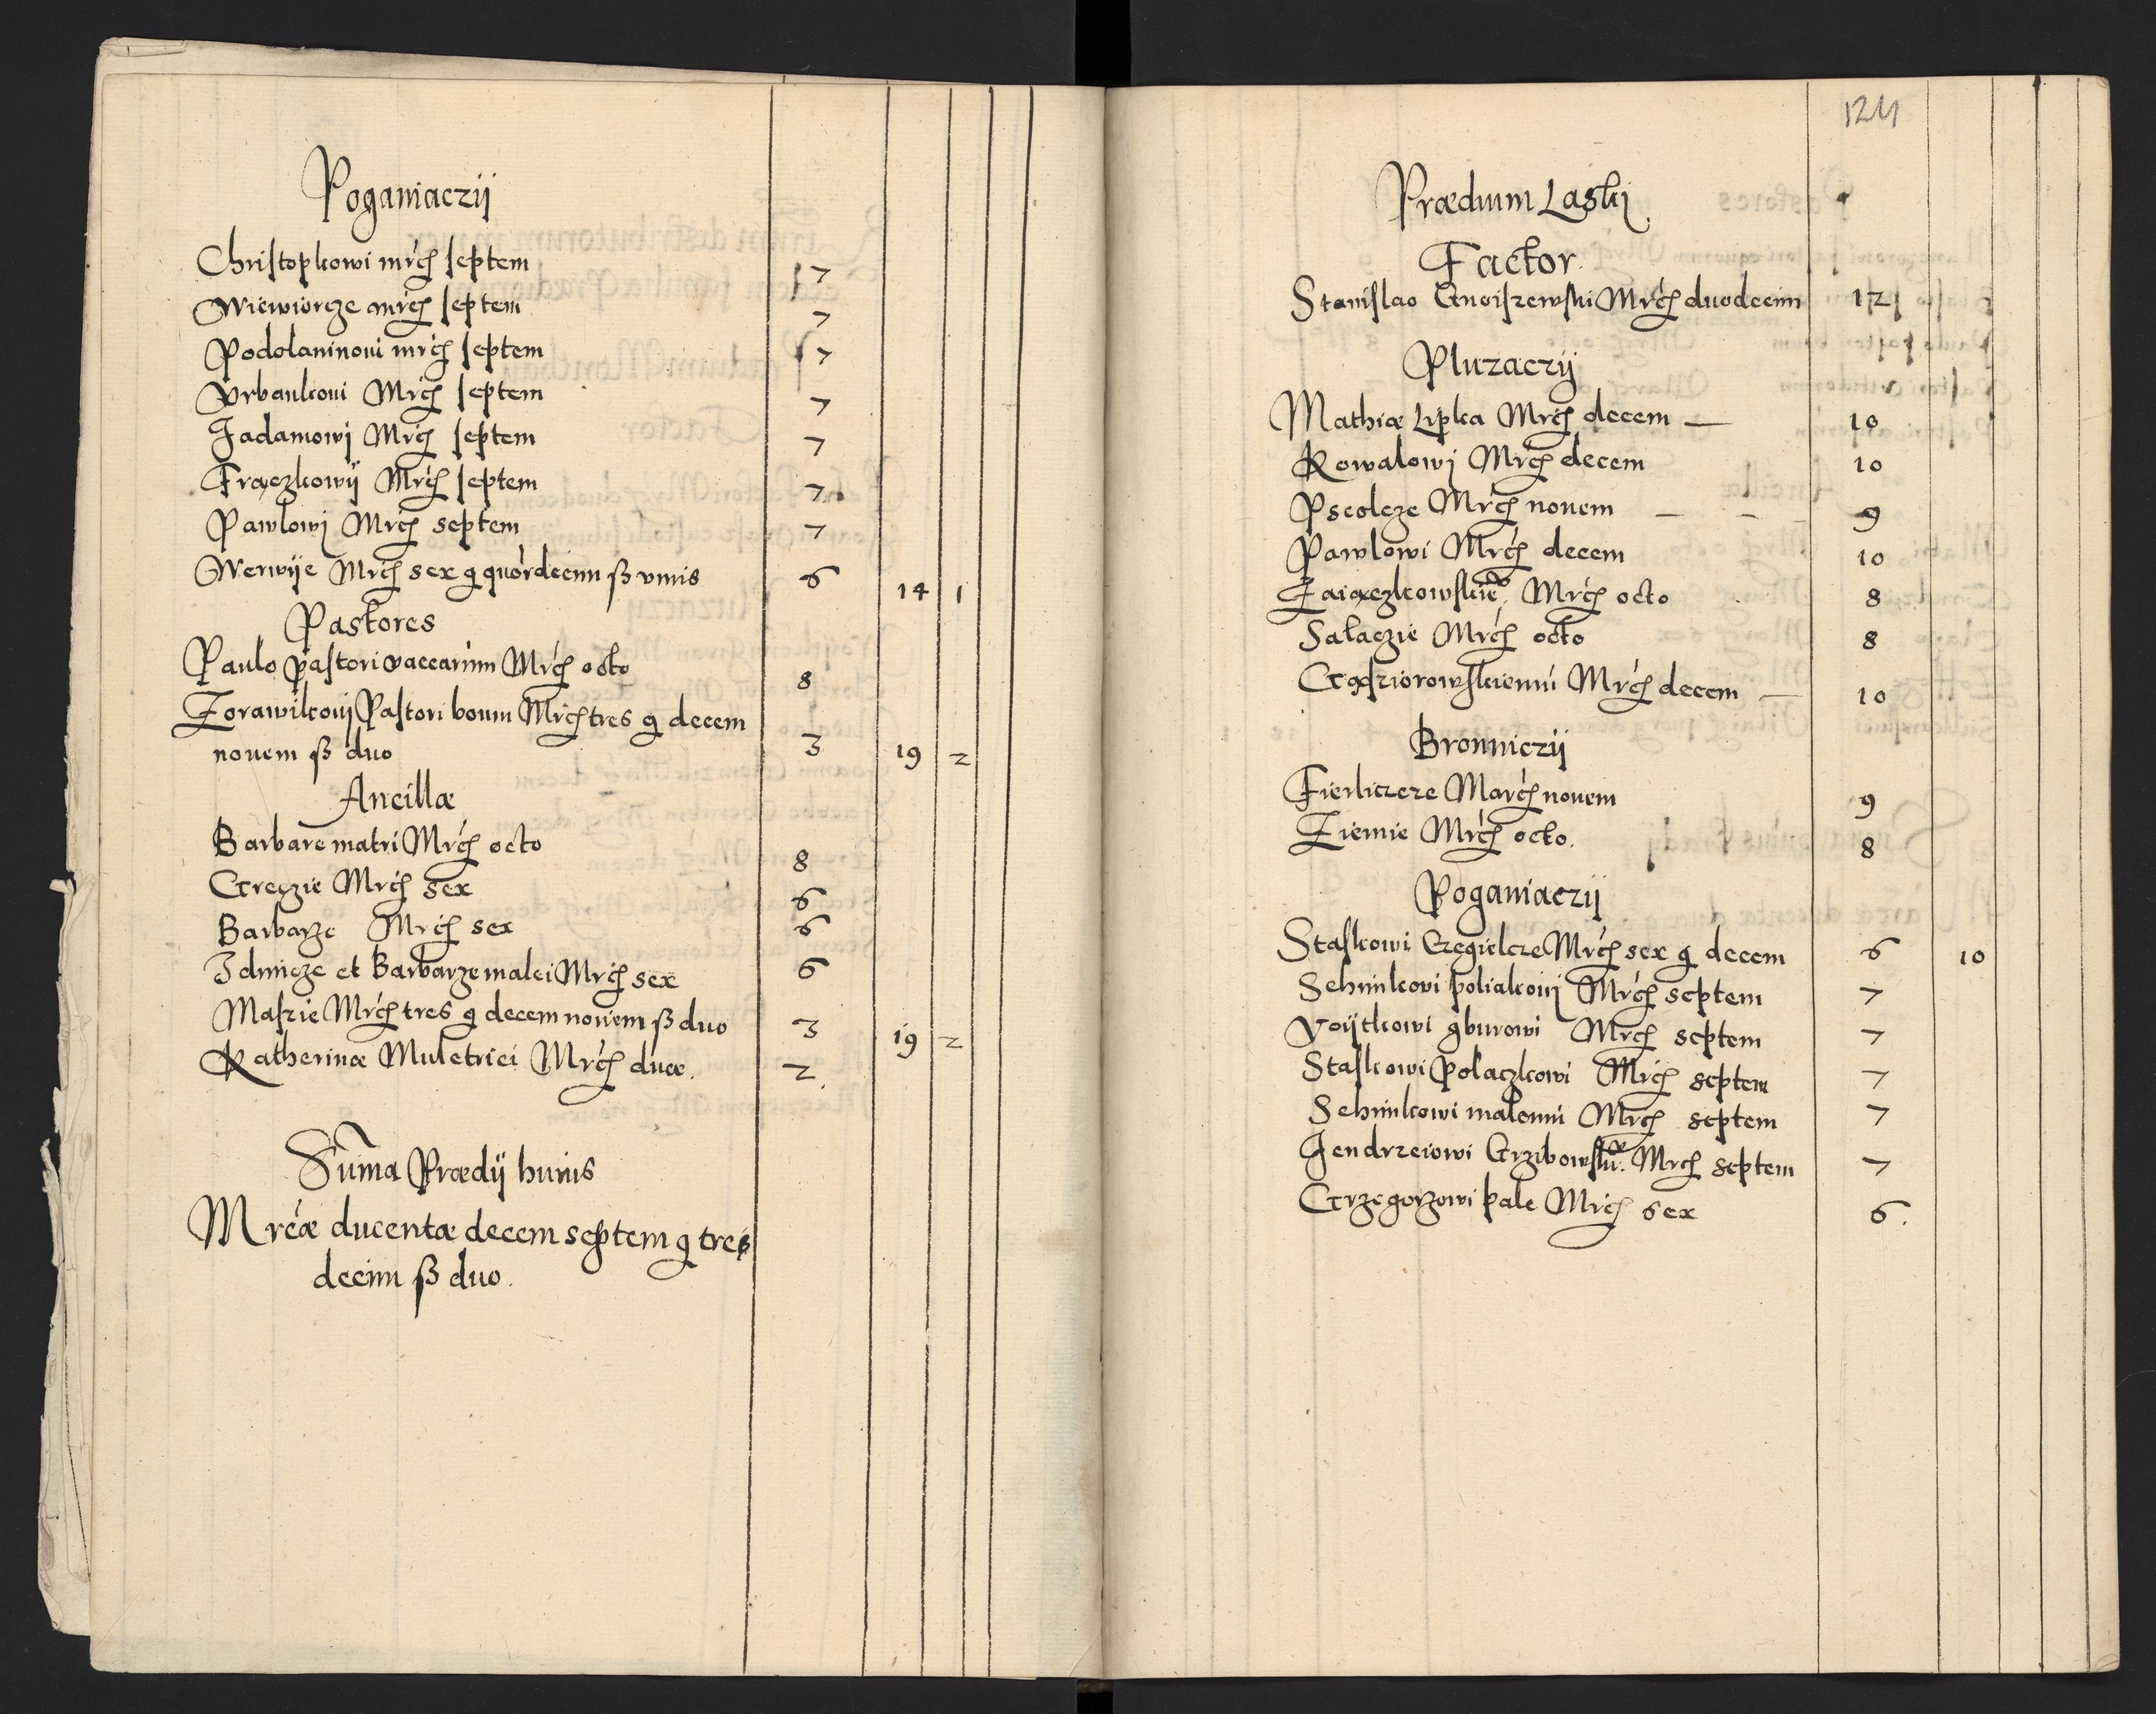 Poganiaczij
Christophkowi mrcz septem 7
Wiewiorcze mrcz septem 7
Podolaninoui mrcz septem 7
Vrbankoui Mrcz septem 7
Jadamowj Mrcz septem 7
Frączkowij Mrcz septem 7
Pawlowj Mrcz septem 7
Werwije Mrcz sex g quordecim ß vnus 6 14 1
Pastores
Paulo Pastori vaccarum Mrcz octo 8
Zorawikouij Pastori boum Mrcz tres g decem
nouem ß duo 3 19 2
Ancillæ
Barbare matri Mrcz octo 8
Greczie Mrcz sex 6
Barbarze Mrcz sex 6
Idnicze et Barbarze malei Mrcz sex 6
Maszie Mrcz tres g decem nouem ß duo 3 19 2
Katherinæ Muletrici Mrcz duæ. 2.
Suma Prædij huius
Mrcæ ducentæ decem septem g tres
decim ß duo.
124
Prædium Laskj
Factor.
Stanislao Gnoiszewski Mrcz duodecim 12
Pluzaczij
Mathiæ Lipka Mrcz decem — 10
Kowalowj Mrcz decem 10
Pscolcze Mrcz nouem — — — 9
Pawlowi Mrcz decem 10
Zaiączkowskie Mrcz octo 8
Sałaczie Mrcz octo 8
Gąsziorowskiemu Mrcz decem — 10
Bronniczij
Fierliczcze Marcz nouem 9
Ziemie Mrcz octo. 8
Poganiaczij
Staskowi Czegielcze Mrcz sex g decem 6 10
Schimkowi poliakowj Mrcz septem 7
Voijtkowi gburowi Mrcz septem 7
Staskowi Polaczkowi Mrcz septem 7
Schimkowi małemu Mrcz septem 7
Jendrzeiowi Grzibowsku. Mrcz septem 7
Grzegorzowi pale Mrcz sex 6.